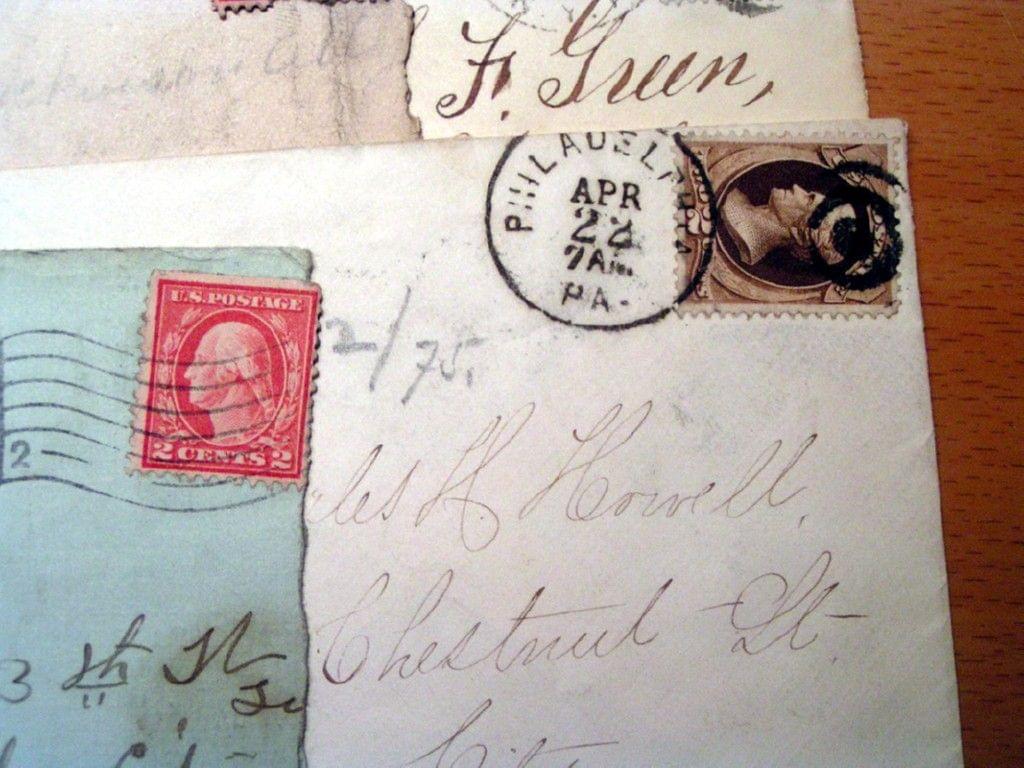 F. Green,
PHILADELPHIA
APR
22
7AM
PA.
U.S. POSTAGE
2 CENTS 2
2
2/75.
les H. Howell,
Chestnut St
3 th St
City